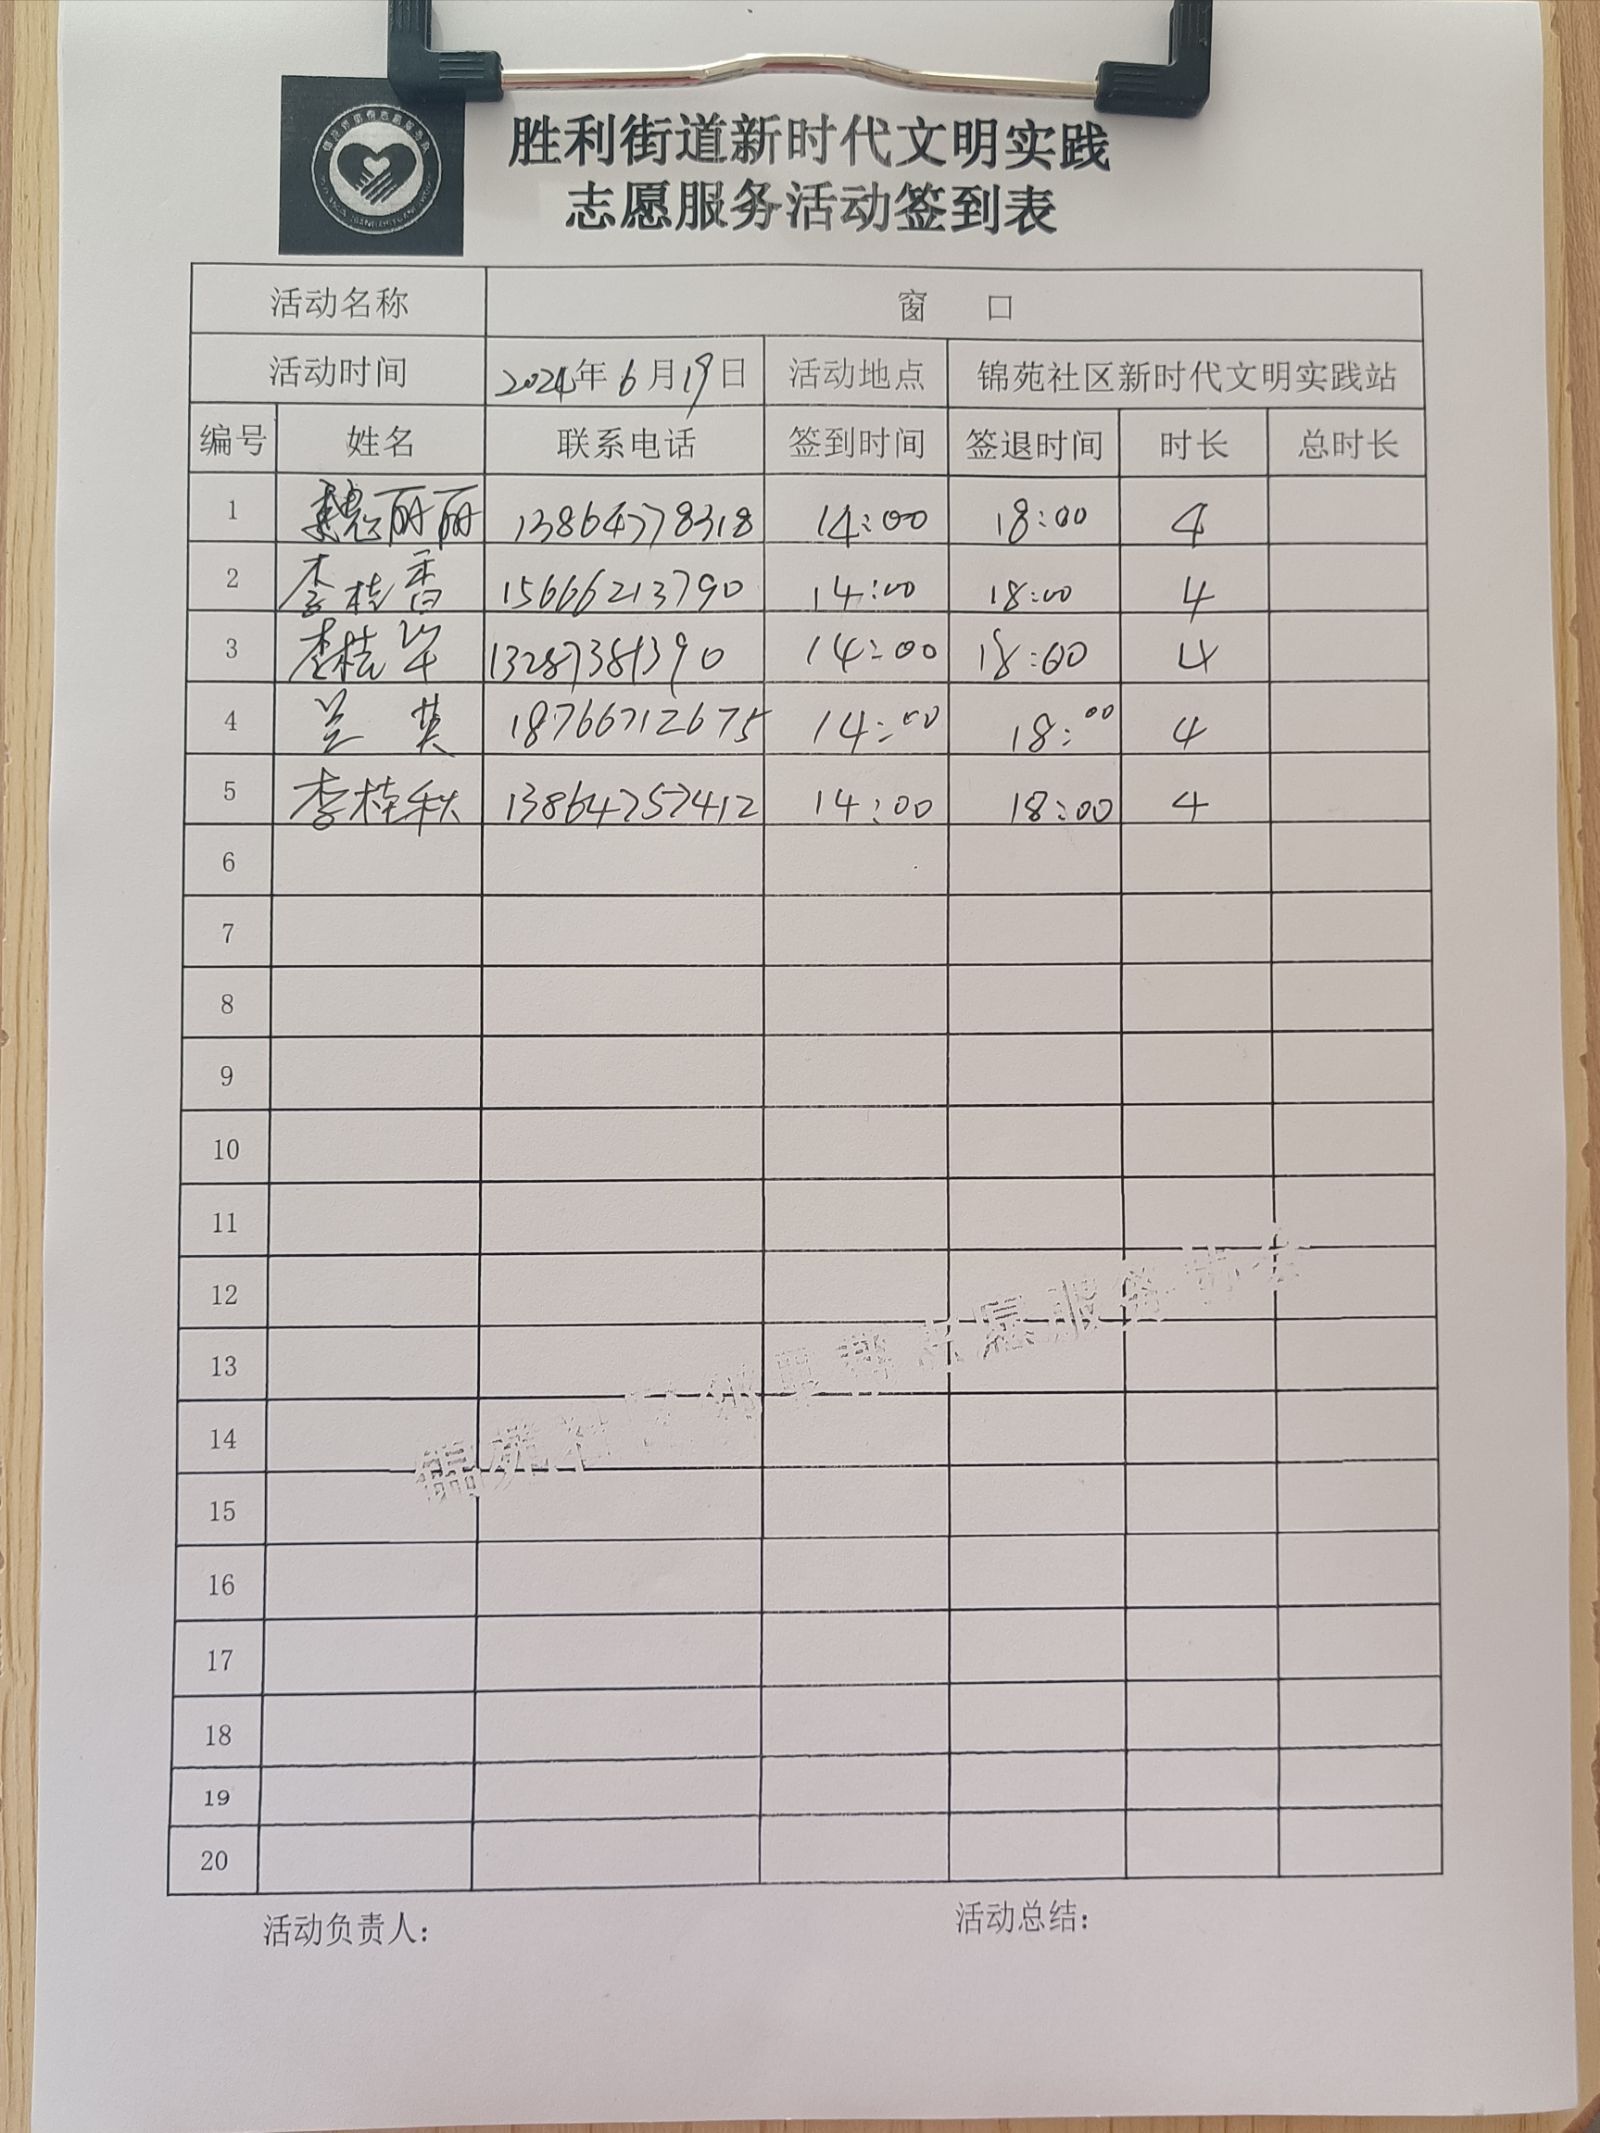 胜利街道新时代文明实践
志愿服务活动签到表
活动名称 窗 口
活动时间 2024年6月19日 活动地点 锦苑社区新时代文明实践站
编号 姓名 联系电话 签到时间 签退时间 时长 总时长
1 魏丽丽 13864778318 14:00 18:00 4
2 李桂香 15666213790 14:00 18:00 4
3 李桂华 13287381390 14:00 18:00 4
4 兰英 18766712675 14:00 18:00 4
5 李桂秋 13864757412 14:00 18:00 4
6
7
8
9
10
11
12
13
14
15
16
17
18
19
20
锦苑社区邻里帮志愿服务协会
活动负责人： 活动总结：